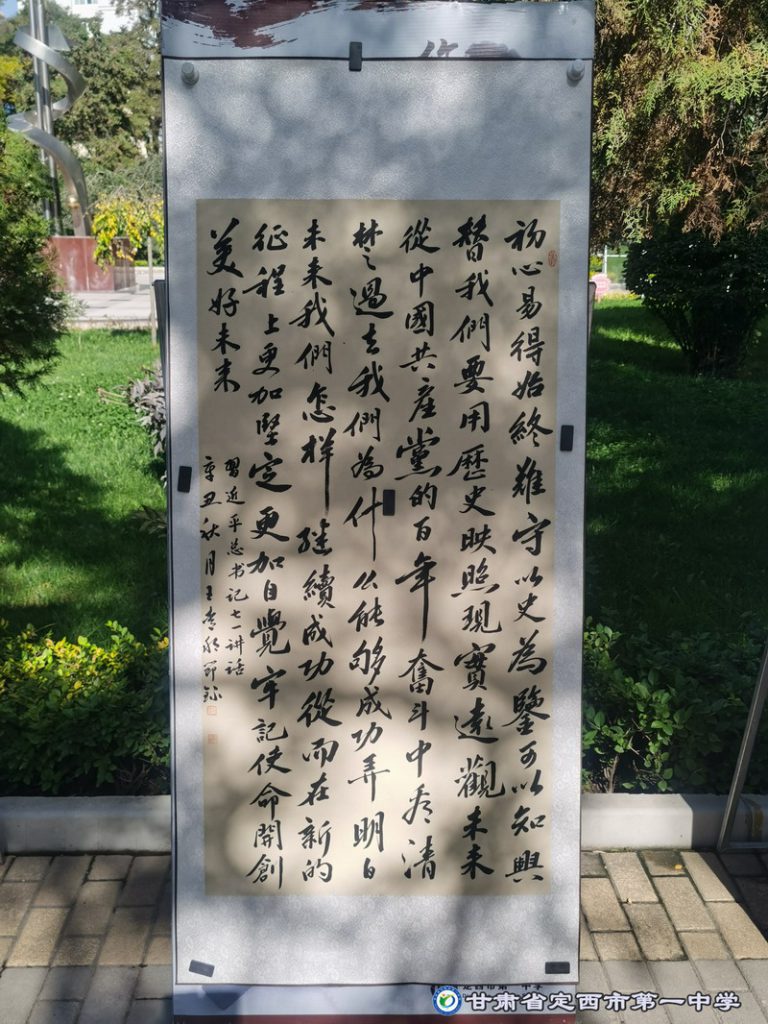 初心易得始終難守以史為鑒可以知興
替我們要用歷史映照現實遠觀未来
從中國共産黨的百年奮斗中看清
楚過去我們為什么能够成功弄明白
未来我們怎樣继續成功從而在新的
征程上更加堅定更加自覺牢記使命開創
美好未来
習近平总书记七一讲话
辛丑秋月王
甘肃省定西市第一中学